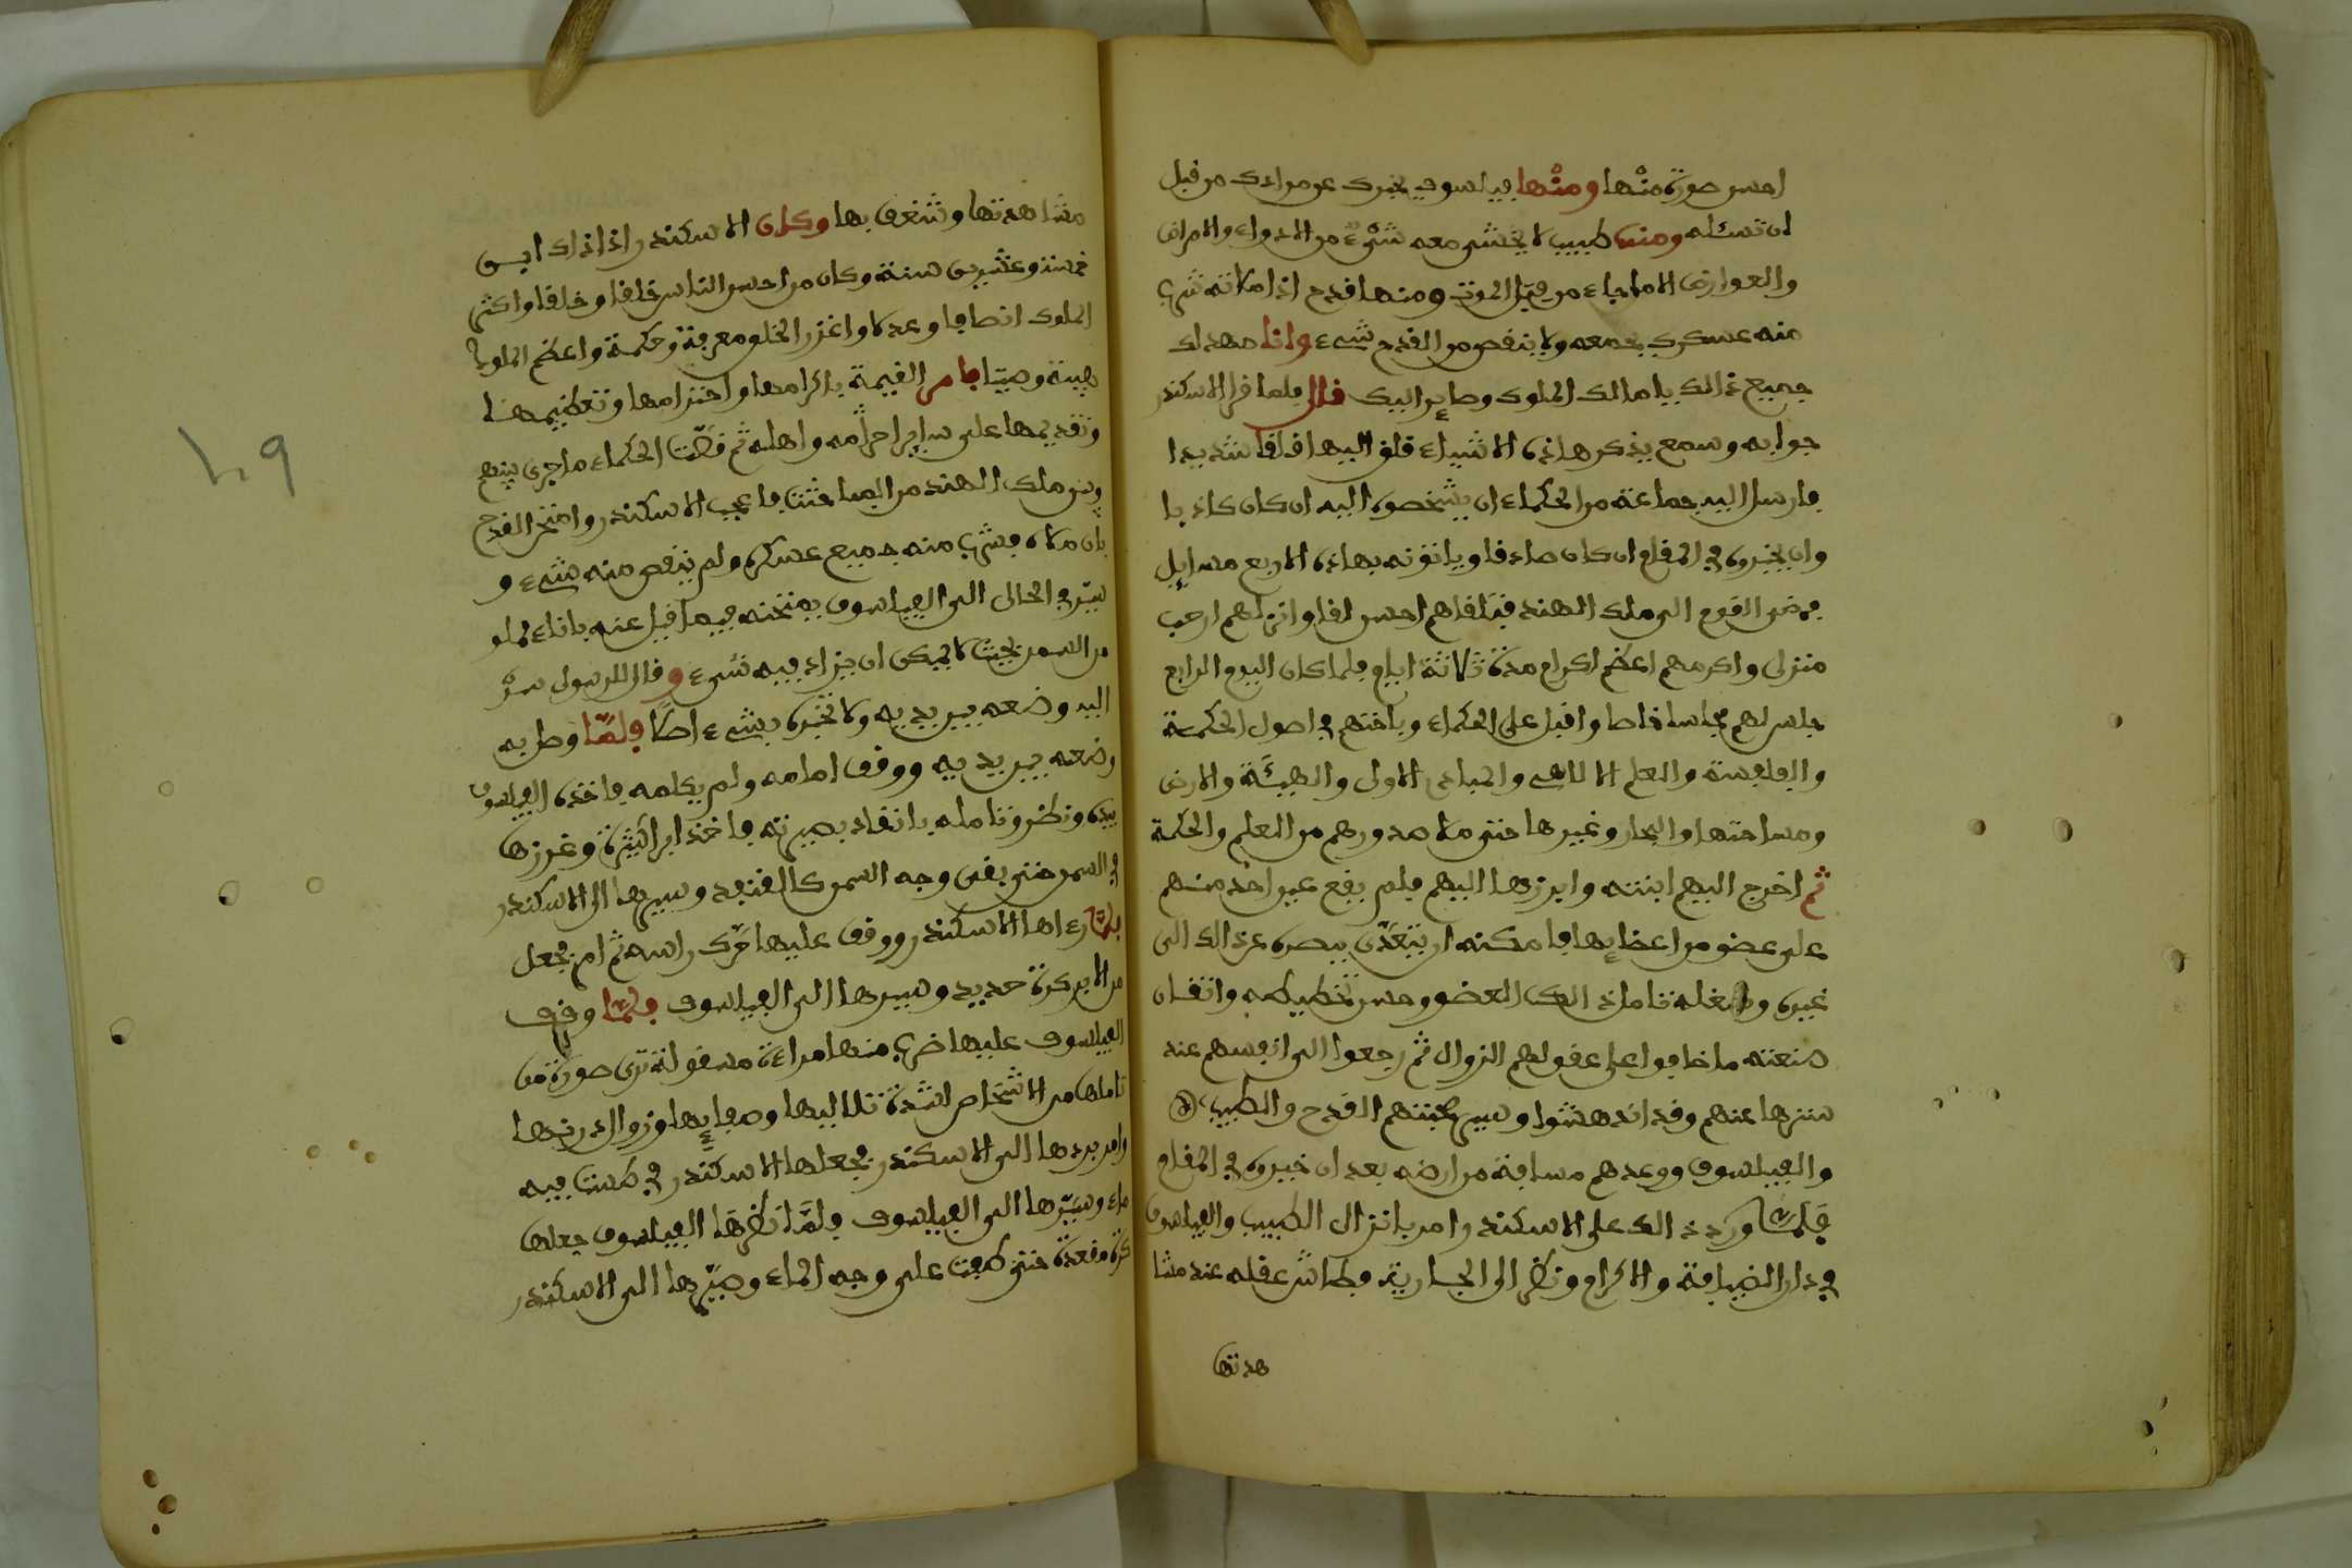 احسن صورة منها ومنها فيلسوف يخبرك عن مرادك من قبل
ان تسئله ومنها طبيب لا يخشى معه شيء من الادواء والامراض
والعوارض الا ما جاء من قبل الموت ومنها قدح اذا ملاته شرب
منه عسكرك بجمعه ولا ينقص من القدح شيء وانا مهداك
جميع ذالك ياما لك الملوك وصاير اليك قال فلما قرا الاسكندر
جوابه وسمع بذكر هاذه الاشياء قلق اليها قلقا شديدا
فارسل اليه جماعة من الحكماء ان يشخصوه اليه ان كان كاذبا
وان يخبروه في المقام ان كان صادقا وياتوته بهاذه الاربع مسايل
فمضى القوم الى ملك الهند فتلقاهم احسن لقا وانزلهم ارحب
منزل واكرمهم اعظم اكرام مدة ثلاثة ايام فلما كان اليوم الرابع
جلس لهم مجلسا خاصا واقبل على الحكماء وباحثهم في اصول الحكمة
والفلسفة والعلم الالاهي والمبادى الاول والهيئة والارض
ومساحتها والبحار وغيرها حتى ملا صدورهم من العلم والحكمة
ثم اخرج اليهم ابنته وابرزها اليهم فلم يقع عين احد منهم
على عضو من اعضايها فامكنه ان يتعدى ببصره عن ذالك الى
غيره وشغله تامل ذالك العضو وحسن تخطيطه واتقان
صنعته ما خافوا على عقولهم الزوال ثم رجعوا الى انفسهم عند
سترها عنهم وقد اندهشوا وسير صحبتهم القدح والطبيب
والفيلسوف ووعدهم مسافة من ارضه بعد ان خيروه في المقام
فلما ورد ذالك على الاسكندر امر بانزال الطبيب والفيلسوف
في دار الضيافة والاكرام ونظر الى الجارية فطاش عقله عند مشا
هدتها
مشاهدتها وشغف بها وكان الاسكندر اذا ذاك ابن
خمسة وعشرين سنة وكان من احسن الناس خلقا وخلقا واكثر
الملوك انصافا وعدلا واغزر الخلق معرفة وحكمة واعظم الملوك
هيبة وصيتا فامر القيمة باكرامها واحترامها وتعظيمها
وتقديمها على ساير احرامه واهله ثم قصت الحكماء ما جرى بينهم
وبين ملك الهند من المباحثت فاعجب الاسكندر وامتحن القدح
بان ملاه فشرب منه جميع عسكره ولم ينقص منه شيء و
سير في الحال الى الفيلسوف يمتحنه فيما قيل عنه باناء مملو
من السمن بحيث لا يمكن ان يزاد فيه شيء وقال للرسول سر
اليه وضعه بين يديه ولا تخبره بشيء اصلا فلما وصل به
وضعه بين يديه ووقف امامه ولم يكلمه فاخذه الفيلسوف
بيده ونظر وتامله باتقاد بصيرته فاخذ ابرا كثيرة وغرزها
في السمن حتى بقى وجه السمن كالقنفد وسيرها الى الاسكندر
فلما رءاها الاسكندر ووقف عليها حرك راسه ثم امر فجعل
من الابر كرة حديد وسيرها الى الفيلسوف فلما وقف
الفيلسوف عليها ضرب منها مراءة مسقولة ترى صورة من
تاملها من الاشخاص لشدة تلاليها وصفايها وزوال درنها
وامر بردها الى الاسكندر فجعلها الاسكندر في طست فيه
ماء وسيرها الى الفيلسوف فلما نظرها الفيلسوف جعلها
كرة مقعدة حتى طفت على وجه الماء وصيرها الى الاسكندر
١٠٩